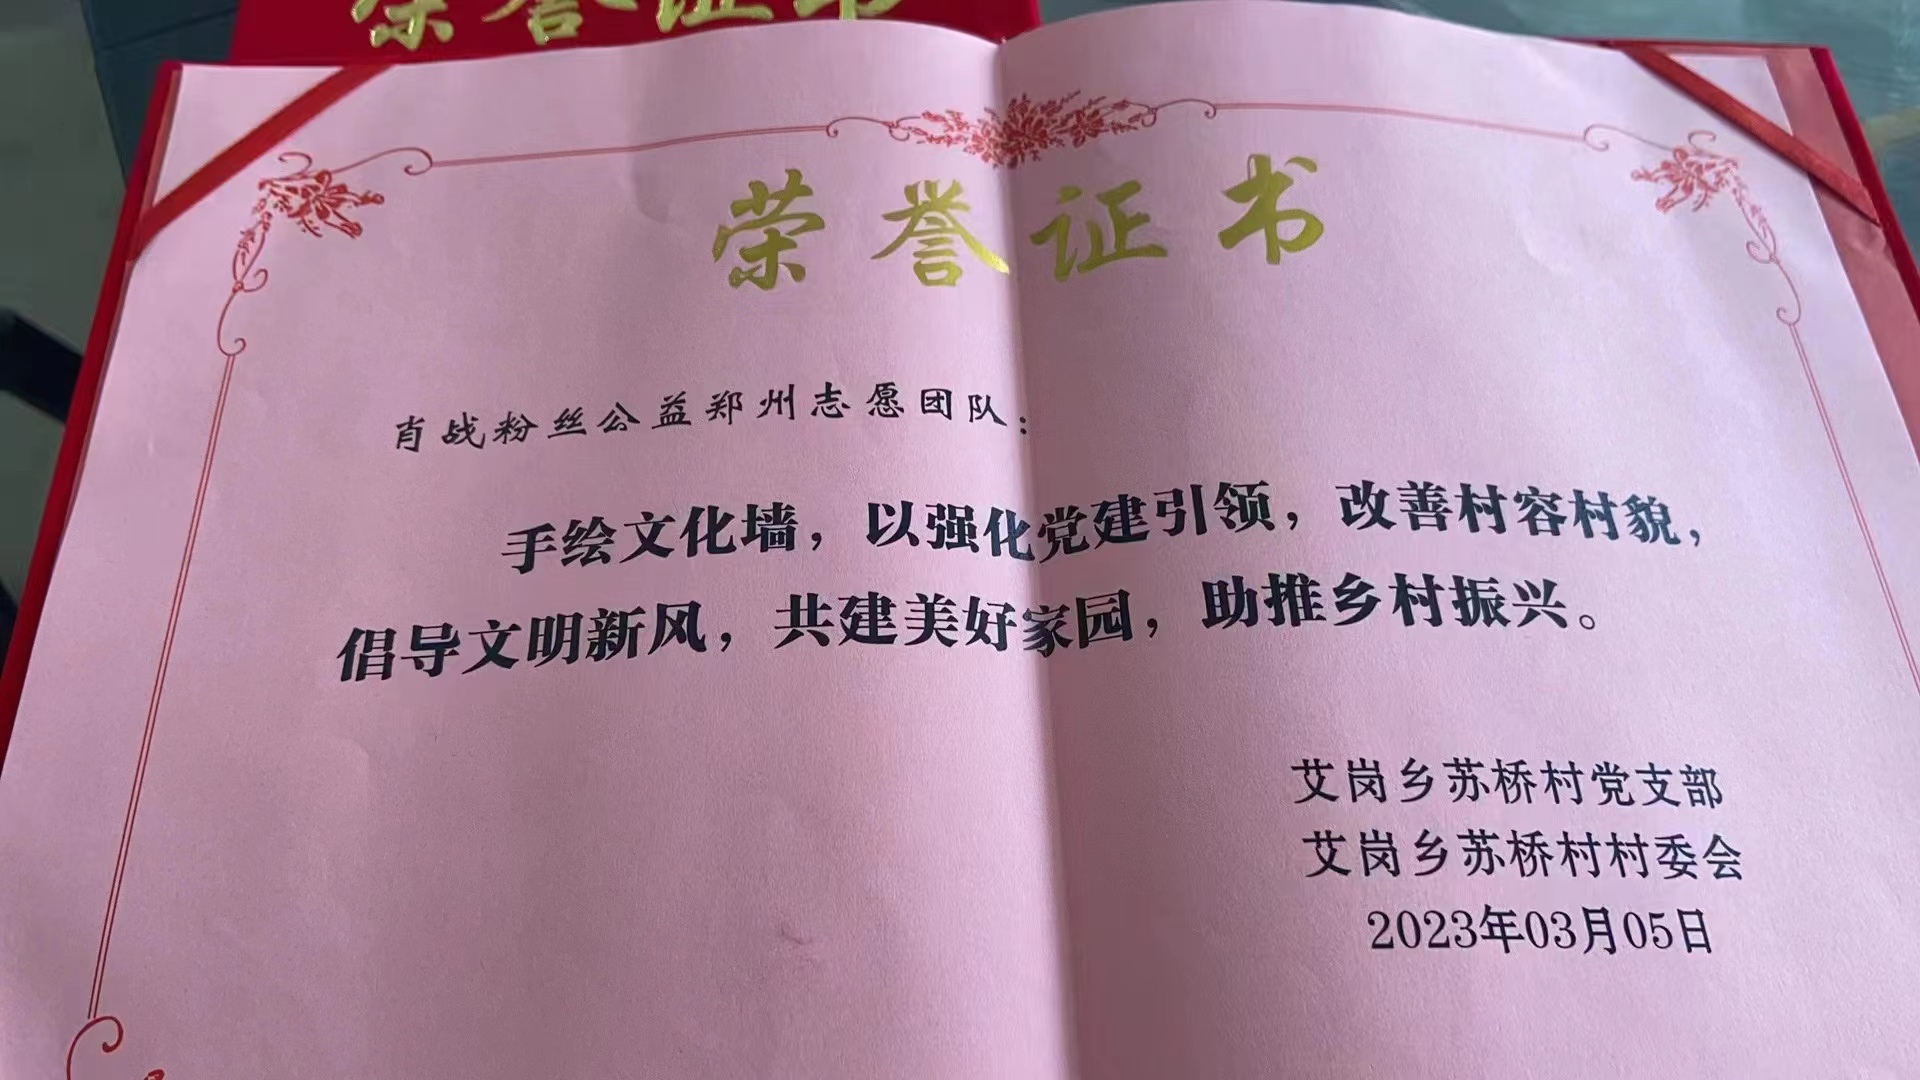 荣誉证书
荣誉证书
肖战粉丝公益郑州志愿团队：
手绘文化墙，以强化党建引领，改善村容村貌，
倡导文明新风，共建美好家园，助推乡村振兴。
艾岗乡苏桥村党支部
艾岗乡苏桥村村委会
2023年03月05日